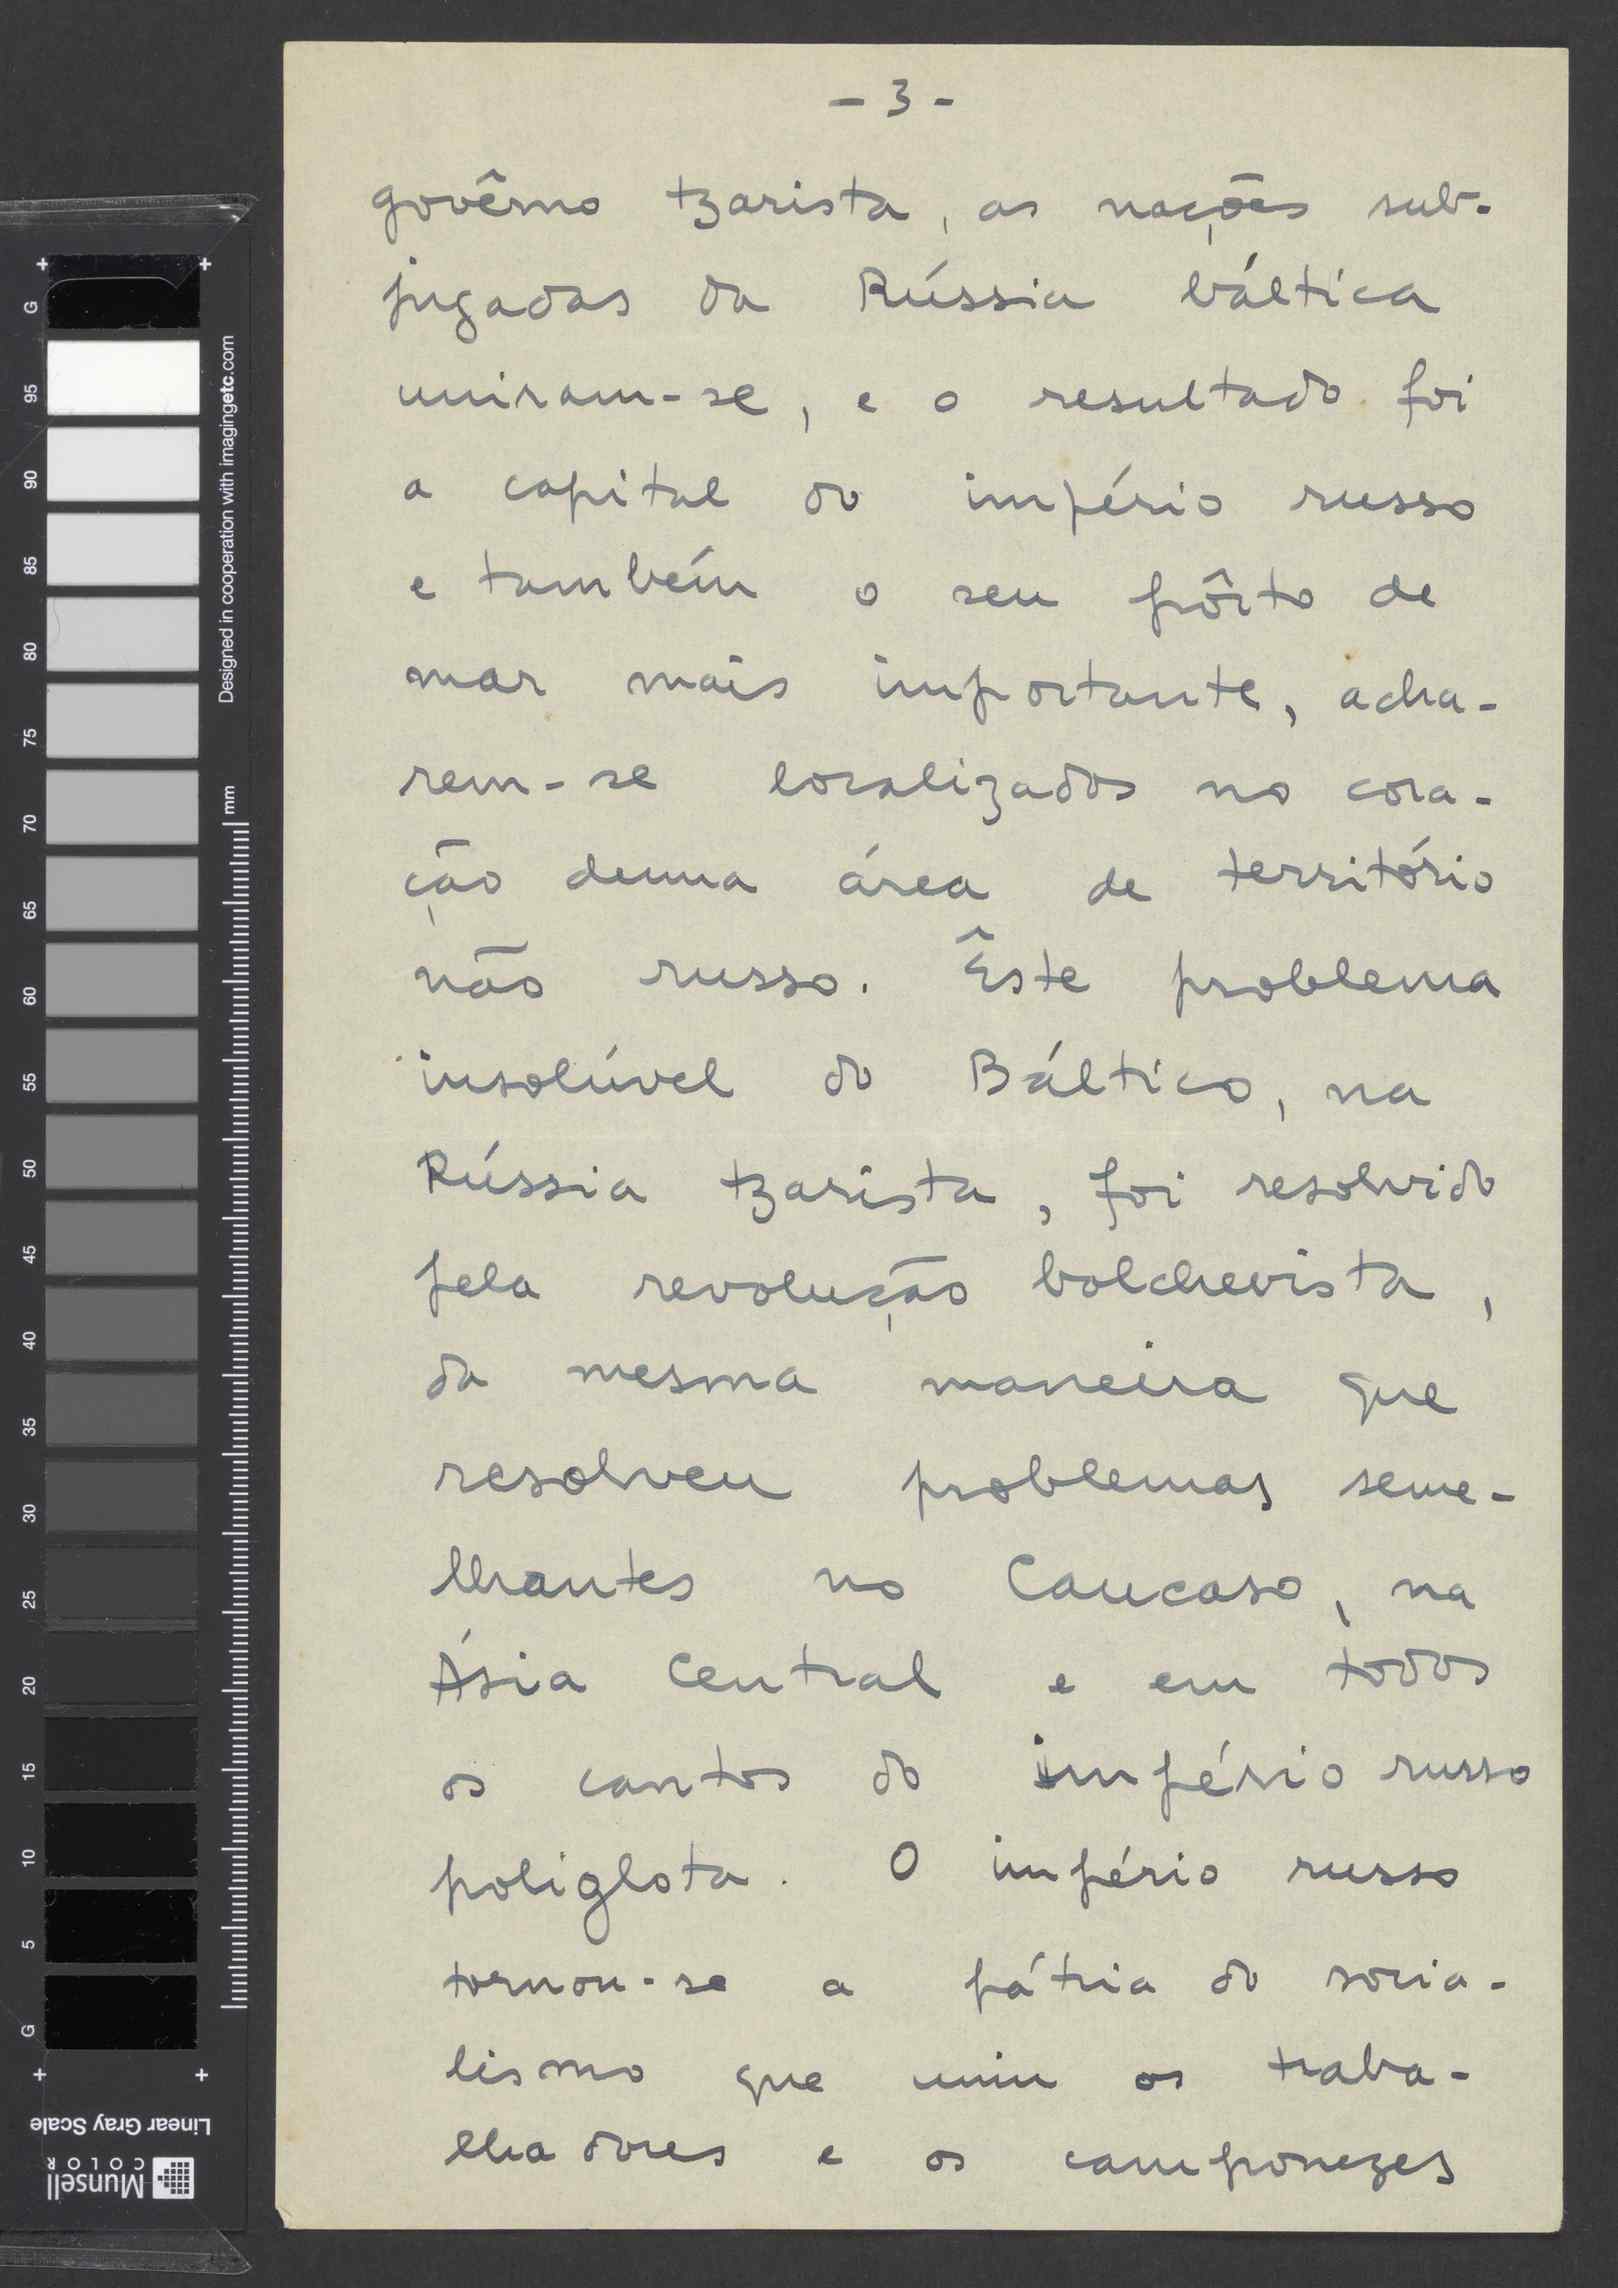 - 3 -
govêrno tzarista, as nações sub-
jugadas da Rússia báltica
uniram-se, e o resultado foi
a capital do império russo
e também o seu pôrto de
mar mais importante, acha-
rem-se localizados no cora-
ção duma área de território
não russo. Êste problema
insolúvel do Báltico, na
Rússia tzarista, foi resolvido
pela revolução bolchevista,
da mesma maneira que
resolveu problemas seme-
lhantes no Caucaso, na
Ásia Central e em todos
os cantos do império russo
poliglota. O império russo
tornou-se a pátria do socia-
lismo que uniu os traba-
lhadores e os camponezes
G
95
90
85
80
75
70
65
60
55
50
45
40
35
30
25
20
15
10
5
G
Designed in cooperation with imagingetc.com
mm
Linear Gray Scale
Munsell
COLOR